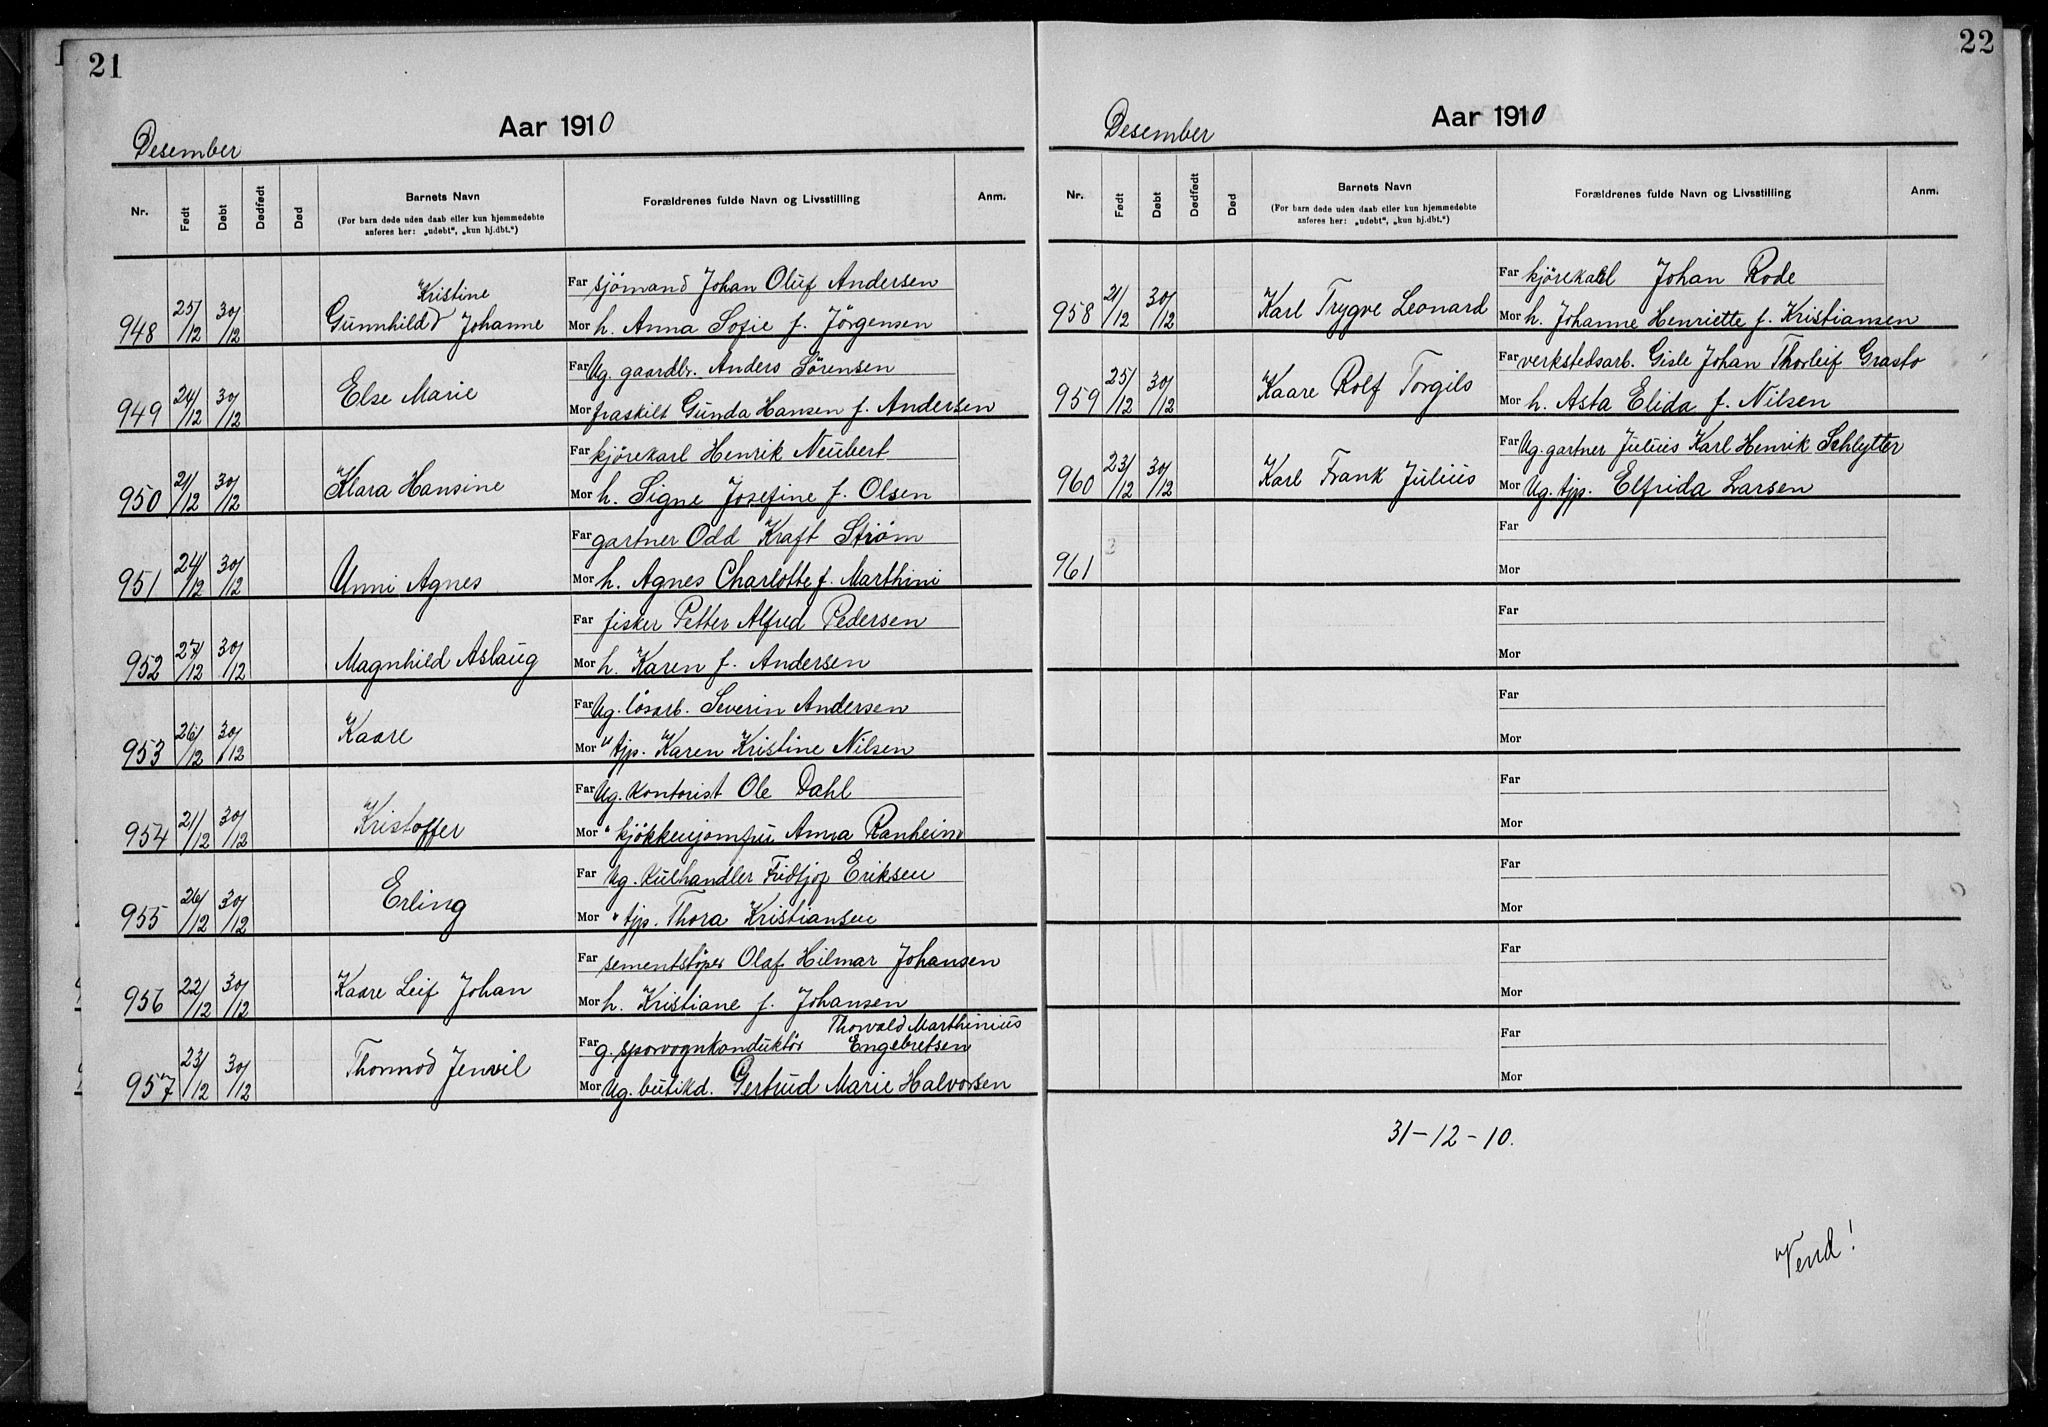 21
Desember
Aar 1910
Nr.
Født
Døbt
Dødfødt
Død
Barnets Navn
(For barn døde uden daab eller kun hjemmedøbte
anføres her: „udøbt“, „kun hj.dbt.“)
Forældrenes fulde Navn og Livsstilling
Anm.
Kristine
Far sjömand Johan Oluf Andersen
948 25/12 30/12 Gunnhild Johanne
Mor h. Anna Sofie f. Jörgensen
Far Ug. gaardbr. Anders Sörensen
949 24/12 30/12 Else Marie
Mor fraskilt Gunda Hansen f. Andersen
Far kjörekarl Henrik Neubert
950 21/12 30/12 Klara Hansine
Mor h. Signe Josefine f. Olsen
Far gartner Odd Kraft Strøm
951 24/12 30/12 Unni Agnes
Mor h. Agnes Charlotte f. Marthini
Far fisker Petter Alfred Pedersen
952 27/12 30/12 Magnhild Aslaug
Mor h. Karen f. Andersen
Far Ug. lösarb. Severin Andersen
953 26/12 30/12 Kaare
Mor " tjp. Karen Kristine Nilsen
Far Ug. kontorist Ole Dahl
954 21/12 30/12 Kristoffer
Mor " kjökkenjomfru Anna Ranheim
Far Ug. kulhandler Fridtjof Eriksen
955 26/12 30/12 Erling
Mor " tjp. Thora Kristiansen
Far sementstöper Olaf Hilmar Johansen
956 22/12 30/12 Kaare Leif Johan
Mor h. Kristiane f. Johansen
Thorvald Marthinius
Far g. sporvognkonduktör Engebretsen
957 23/12 30/12 Thormod Jenvil
Mor Ug. butikd. Gertrud Marie Halvorsen
22
Desember
Aar 1910
Nr.
Født
Døbt
Dødfødt
Død
Barnets Navn
(For barn døde uden daab eller kun hjemmedøbte
anføres her: „udøbt“, „kun hj.dbt.“)
Forældrenes fulde Navn og Livsstilling
Anm.
Far kjörekarl Johan Rode
958 21/12 30/12 Karl Trygve Leonard
Mor h. Johanne Henriette f. Kristiansen
Far verkstedsarb. Gisle Johan Thorleif Grasto
959 25/12 30/12 Kaare Rolf Torgils
Mor h. Asta Elida f. Nilsen
Far Ug. gartner Julius Karl Henrik Schlytter
960 23/12 30/12 Karl Frank Julius
Mor Ug. tjp. Elfrida Larsen
Far
961
Mor
Far
Mor
Far
Mor
Far
Mor
Far
Mor
Far
Mor
Far
Mor
31-12-10.
Vend!